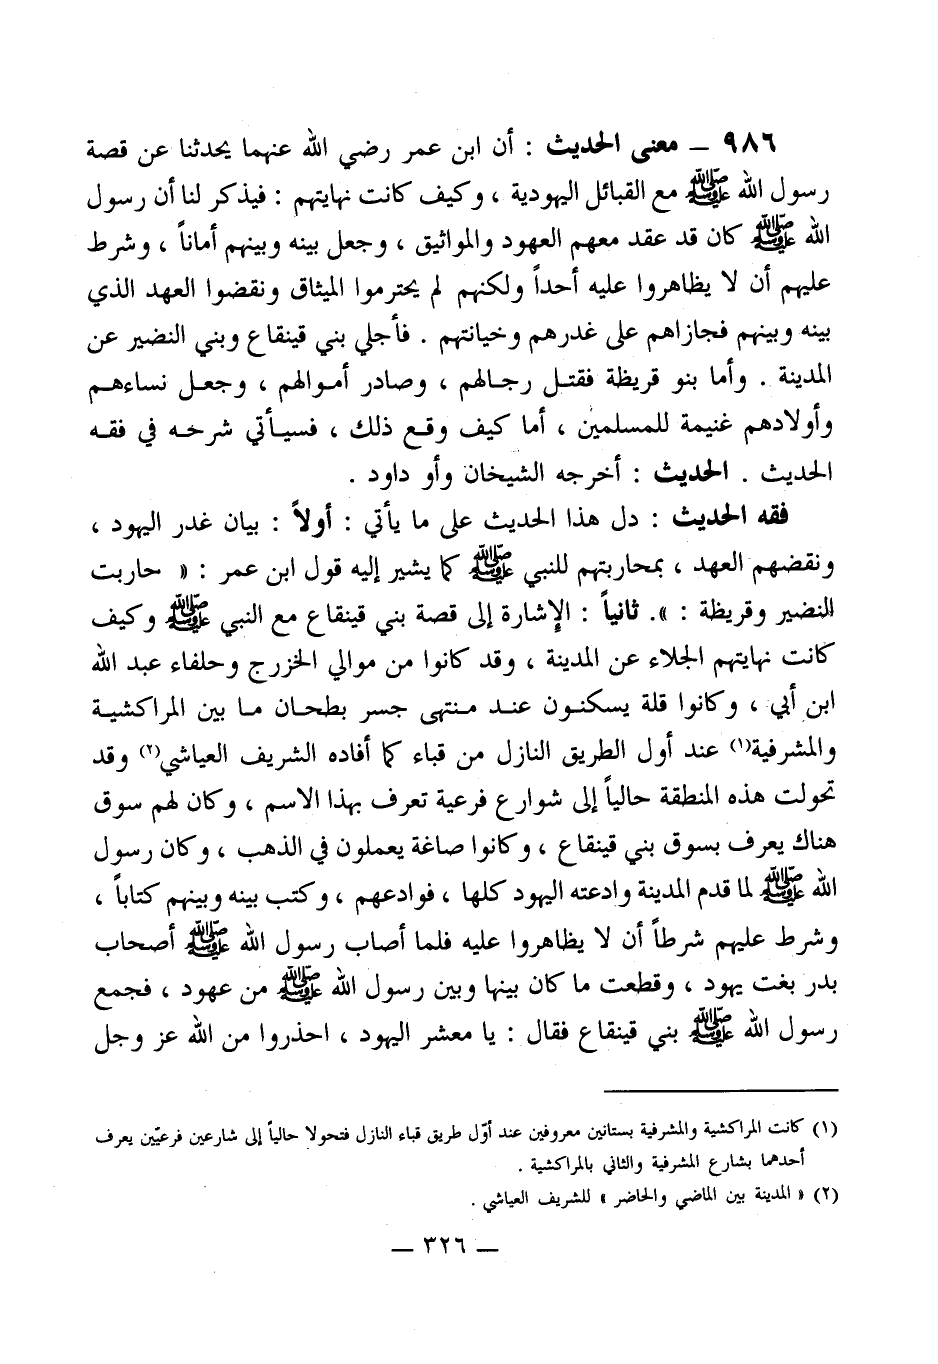 ٩٨٦ ـ معنى الحديث : أن ابن عمر رضي الله عنهما يحدثنا عن قصة
رسول الله ﷺ مع القبائل اليهودية ، وكيف كانت نهايتهم : فيذكر لنا أن رسول
الله ﷺ كان قد عقد معهم العهود والمواثيق ، وجعل بينه وبينهم أماناً ، وشرط
عليهم أن لا يظاهروا عليه أحداً ولكنهم لم يحترموا الميثاق ونقضوا العهد الذي
بينه وبينهم فجازاهم على غدرهم وخيانتهم . فأجلي بني قينقاع وبني النضير عن
المدينة . وأما بنو قريظة فقتل رجالهم ، وصادر أموالهم ، وجعل نساءهم
وأولادهم غنيمة للمسلمين ، أما كيف وقع ذلك ، فسيأتي شرحه في فقه
الحديث . الحديث : أخرجه الشيخان وأو داود .
فقه الحديث : دل هذا الحديث على ما يأتي : أولاً : بيان غدر اليهود ،
ونقضهم العهد ، بمحاربتهم للنبي ﷺ كما يشير إليه قول ابن عمر : « حاربت
النضير وقريظة : ». ثانياً : الإشارة إلى قصة بني قينقاع مع النبي ﷺ وكيف
كانت نهايتهم الجلاء عن المدينة ، وقد كانوا من موالي الخزرج وحلفاء عبد الله
ابن أبي ، وكانوا قلة يسكنون عند منتهى جسر بطحان ما بين المراكشية
والمشرفية(١) عند أول الطريق النازل من قباء كما أفاده الشريف العياشي(٢) وقد
تحولت هذه المنطقة حالياً إلى شوارع فرعية تعرف بهذا الاسم ، وكان لهم سوق
هناك يعرف بسوق بني قينقاع ، وكانوا صاغة يعملون في الذهب ، وكان رسول
الله ﷺ لما قدم المدينة وادعته اليهود كلها ، فوادعهم ، وكتب بينه وبينهم كتاباً ،
وشرط عليهم شرطاً أن لا يظاهروا عليه فلما أصاب رسول الله ﷺ أصحاب
بدر بغت يهود ، وقطعت ما كان بينها وبين رسول الله ﷺ من عهود ، فجمع
رسول الله ﷺ بني قينقاع فقال : يا معشر اليهود ، احذروا من الله عز وجل
(١) كانت المراكشية والمشرفية بستانين معروفين عند أوّل طريق قباء النازل فتحولا حالياً إلى شارعين فرعيّين يعرف
أحدهما بشارع المشرفية والثاني بالمراكشية .
(٢) « المدينة بين الماضي والحاضر » للشريف العياشي .
— ٣٢٦ —